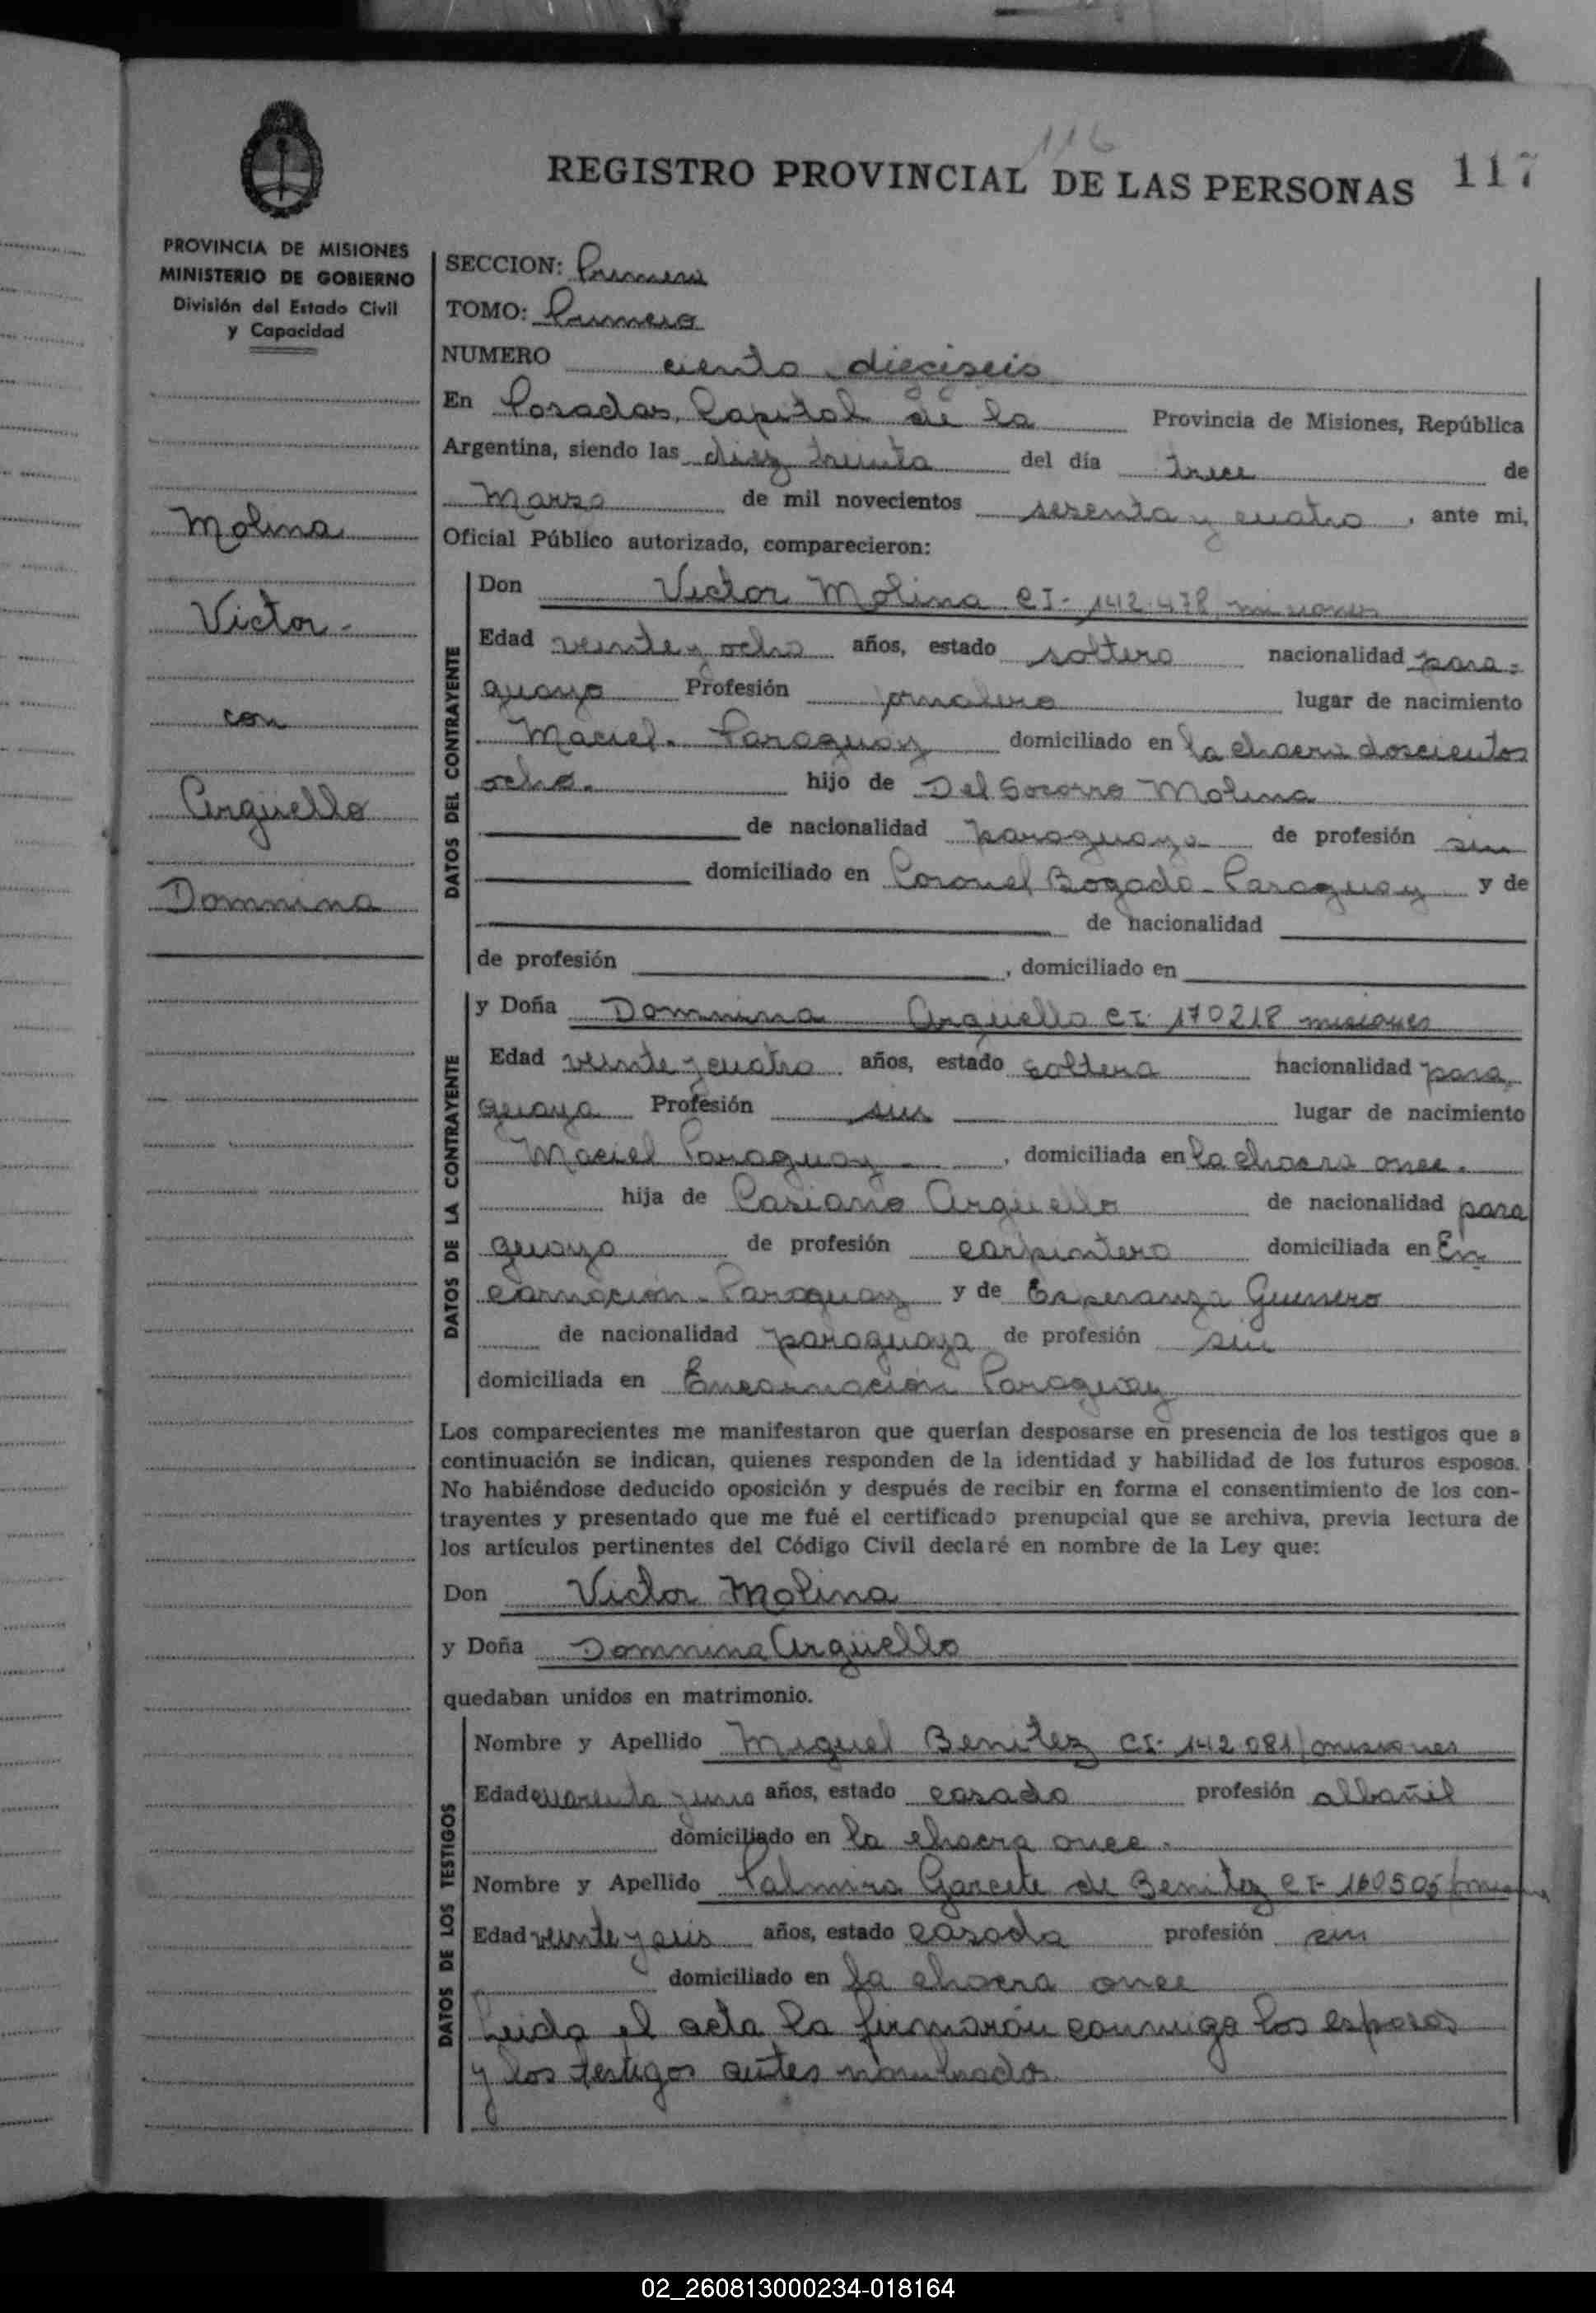 116
REGISTRO PROVINCIAL DE LAS PERSONAS 117
PROVINCIA DE MISIONES
MINISTERIO DE GOBIERNO
División del Estado Civil
y Capacidad
Molina
Victor -
con
Argüello
Domnina
SECCION: Primera
TOMO: Primero
NUMERO ciento dieciseis
En Posadas, Capital de la Provincia de Misiones, República
Argentina, siendo las diez treinta del día trece de
Marzo de mil novecientos sesenta y cuatro, ante mi,
Oficial Público autorizado, comparecieron:
DATOS DEL CONTRAYENTE
Don Victor Molina CI- 142.478, misiones
Edad veinte y ocho años, estado soltero nacionalidad para-
guayo Profesión jornalero lugar de nacimiento
Maciel - Paraguay domiciliado en la chacra doscientos
ocho. hijo de Del Socorro Molina
de nacionalidad paraguaya de profesión sin
domiciliado en Coronel Bogado - Paraguay y de
de nacionalidad
de profesión , domiciliado en
DATOS DE LA CONTRAYENTE
y Doña Domnina Argüello CI- 170218 misiones
Edad veinte y cuatro años, estado soltera nacionalidad para
guaya Profesión sin lugar de nacimiento
Maciel Paraguay - , domiciliada en la chacra once.
hija de Casiano Argüello de nacionalidad para
guayo de profesión carpintero domiciliada en En
carnación - Paraguay y de Esperanza Guerrero
de nacionalidad paraguaya de profesión sin
domiciliada en Encarnación Paraguay
Los comparecientes me manifestaron que querían desposarse en presencia de los testigos que a
continuación se indican, quienes responden de la identidad y habilidad de los futuros esposos.
No habiéndose deducido oposición y después de recibir en forma el consentimiento de los con-
trayentes y presentado que me fué el certificado prenupcial que se archiva, previa lectura de
los artículos pertinentes del Código Civil declaré en nombre de la Ley que:
Don Victor Molina
y Doña Domnina Argüello
quedaban unidos en matrimonio.
DATOS DE LOS TESTIGOS
Nombre y Apellido Miguel Benitez CI- 142081/misiones
Edad cuarenta y uno años, estado casado profesión albañil
domiciliado en la chacra once.
Nombre y Apellido Palmira Garcete de Benitez CI- 160505/misiones
Edad veinte y seis años, estado casada profesión sin
domiciliado en la chacra once
Leida el acta la firmarán conmigo los esposos
y los testigos antes nombrados.
02_260813000234-018164